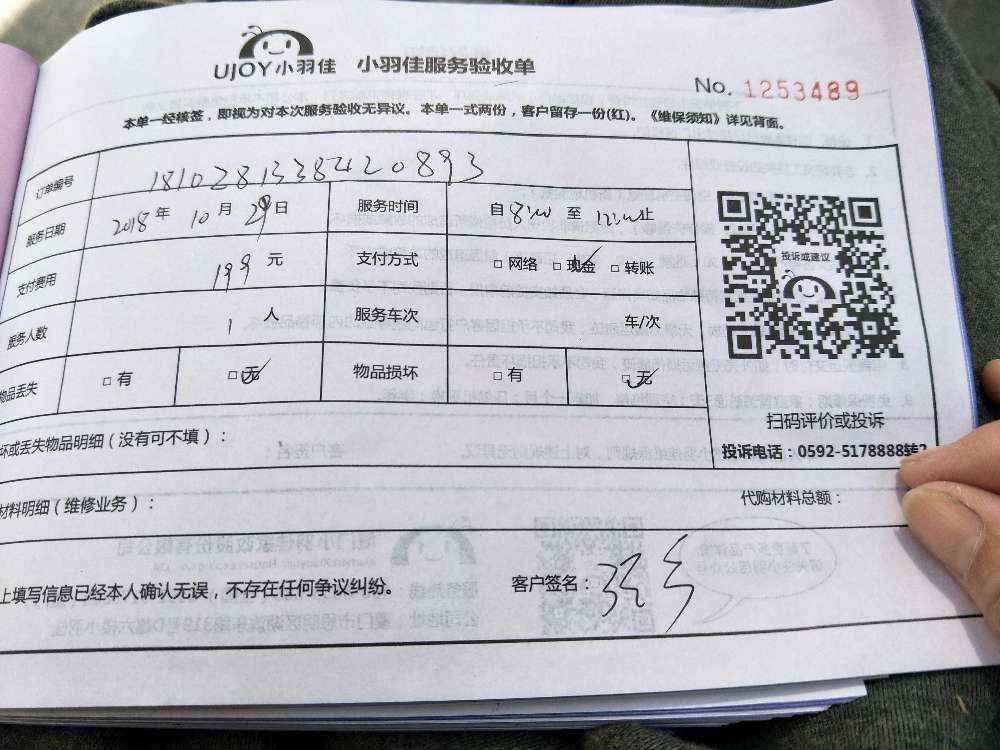 UJOY小羽佳 小羽佳服务验收单
No. 1253489
本单一经核签，即视为对本次服务验收无异议。本单一式两份，客户留存一份(红)。《维保须知》详见背面。
订单编号 181028133842089 3
服务日期 2018年 10月 29日 服务时间 自8:00至12:00止
支付费用 199元 支付方式 □网络 □现金 □转账
服务人数 1人 服务车次 车/次
物品丢失 □有 □无 物品损坏 □有 □无
投诉或建议
扫码评价或投诉
投诉电话：0592-5178888转2
坏或丢失物品明细（没有可不填）：
材料明细（维修业务）： 代购材料总额：
上填写信息已经本人确认无误，不存在任何争议纠纷。 客户签名：